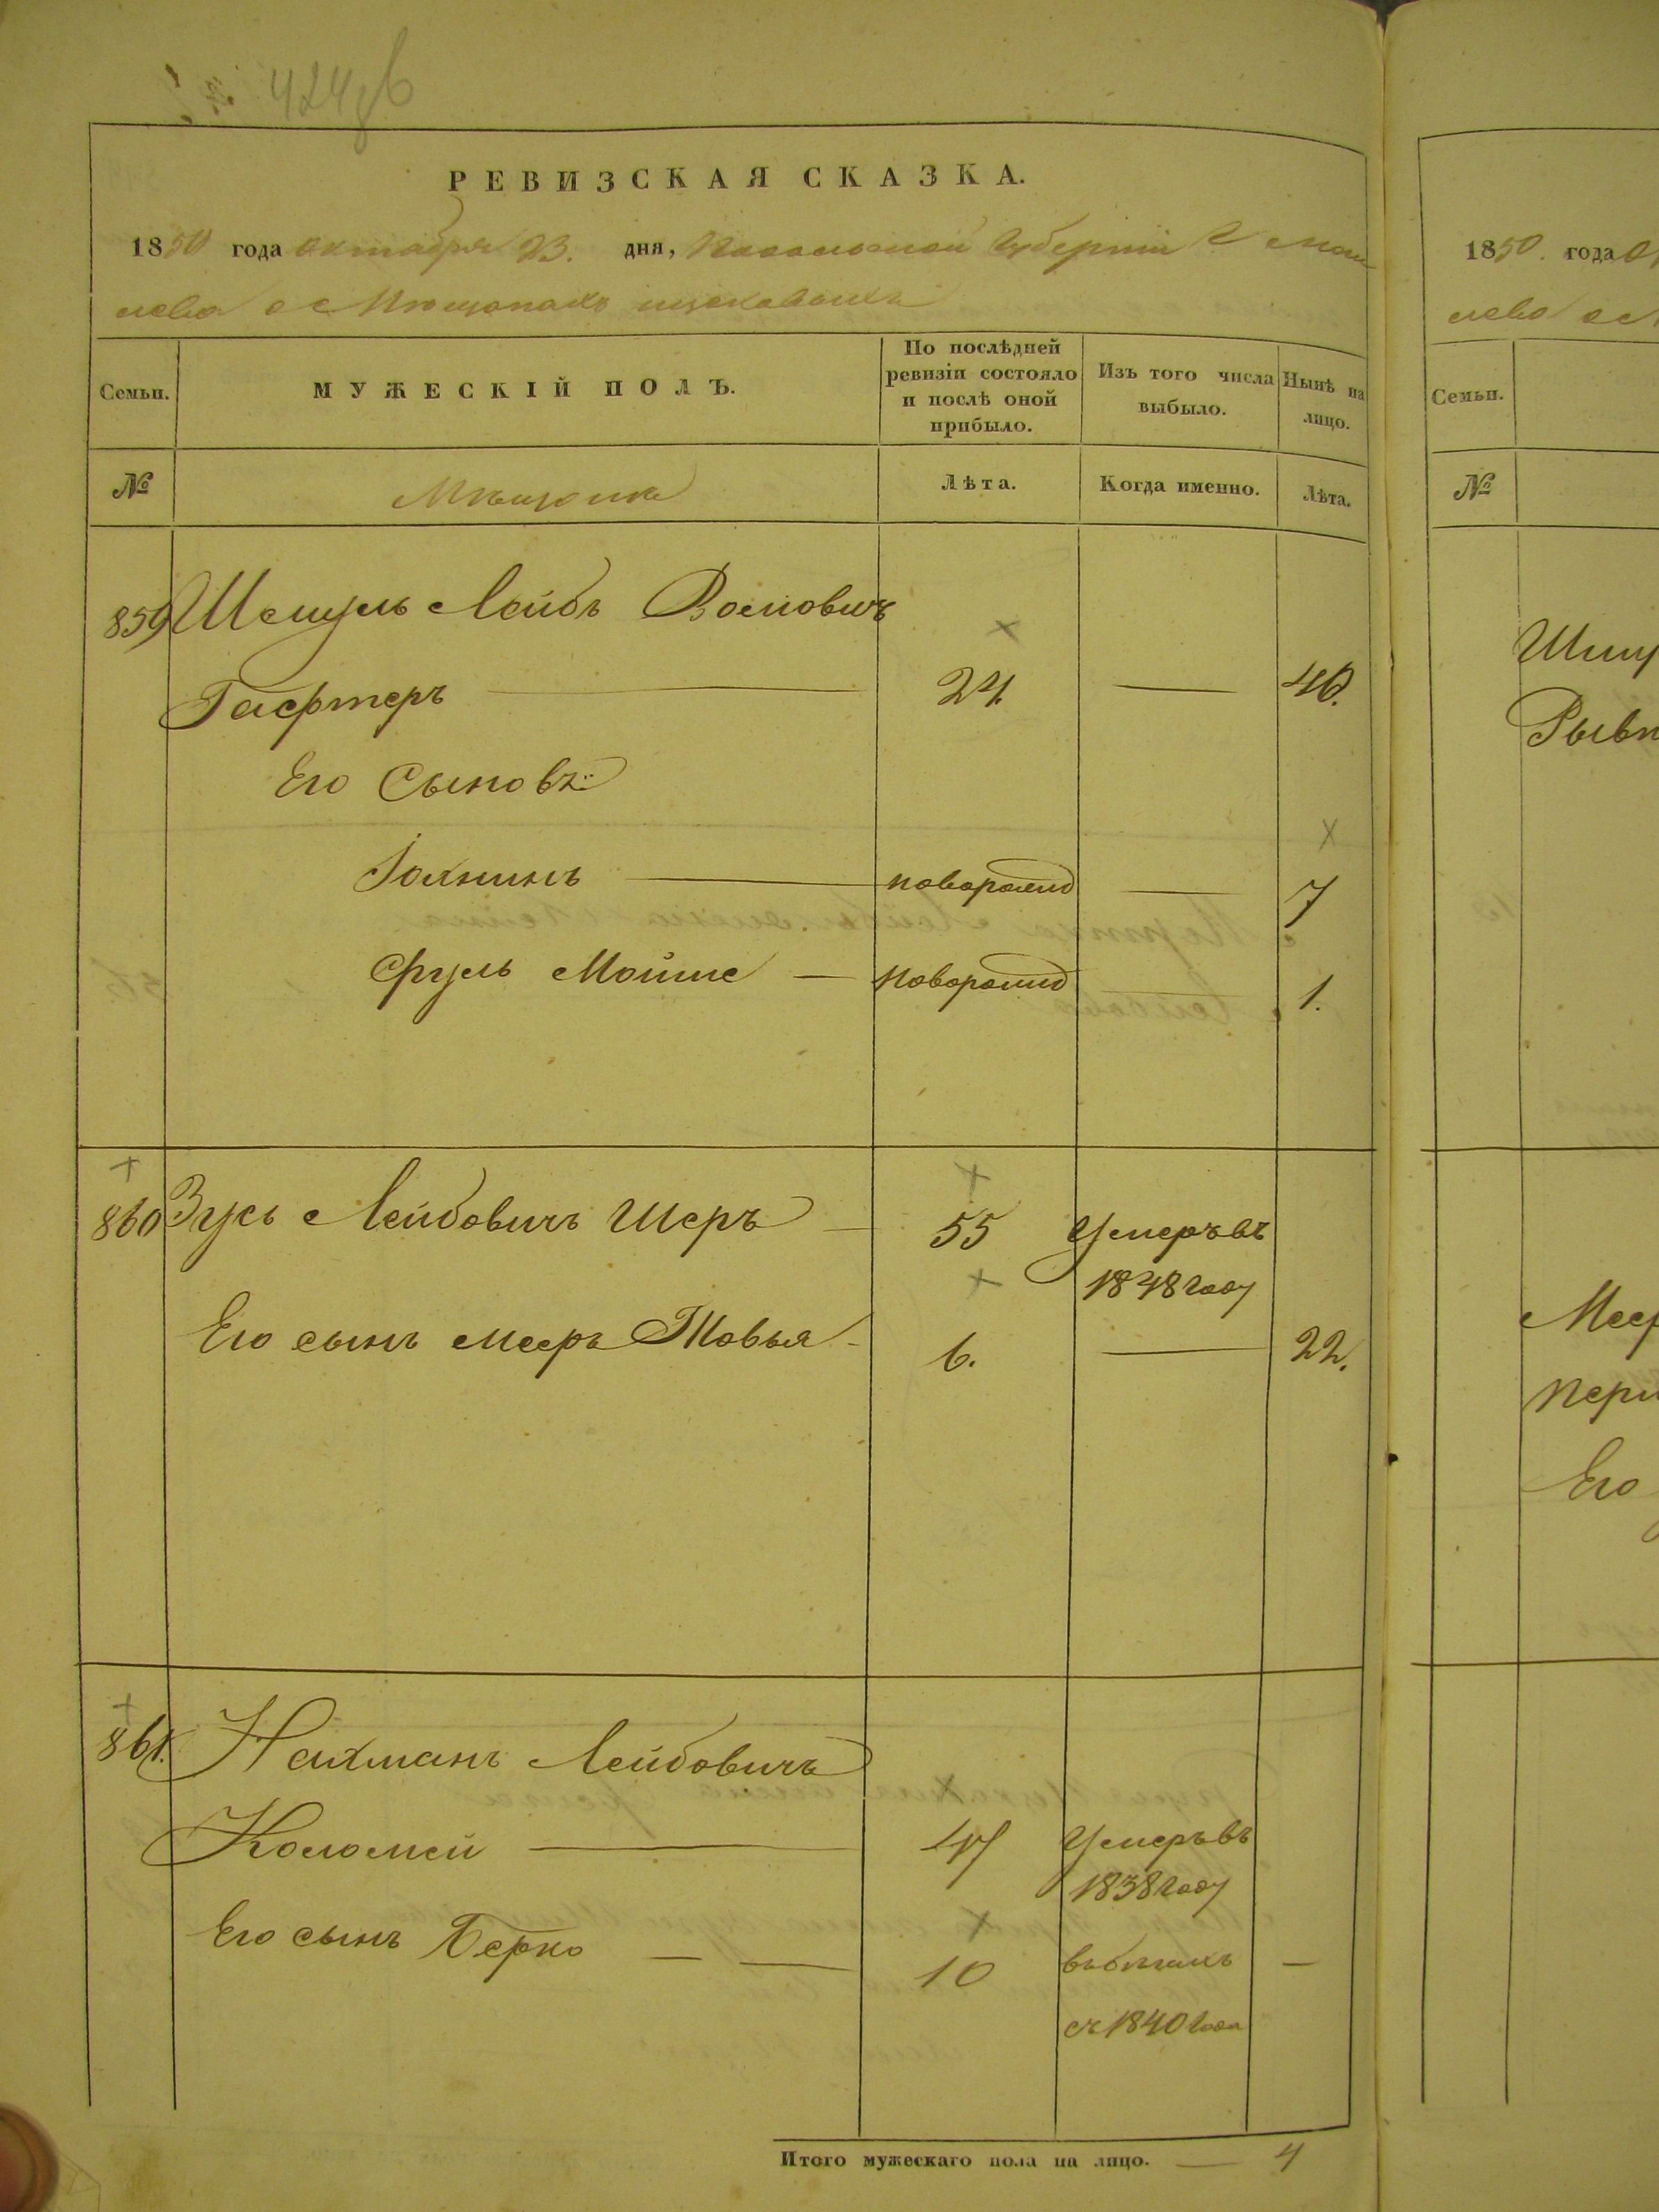 424 об
РЕВИЗСКАЯ СКАЗКА.
1850 года октября 23. дня, Подольской Губерніи Г моги
лева о е Мѣщанахъ
Семьи.
МУЖЕСКІЙ ПОЛЪ.
По послѣдней ревизіи состояло и послѣ оной прибыло.
Изъ того числа выбыло.
Нынѣ на лицо.
№
Мѣщане
Лѣта.
Когда именно.
Лѣта.
859 Шмуль Лейбъ Волиовичъ
Гаефтеръ 24. 40.
Его Сыновъя
Іохнинъ новорожд 7
Сруль Мойше новорожд 1.
860 Зусь Лейбовичъ Шеръ 55 Умеръ въ
1848 году
Его сынъ Мееръ Товья 6. 22.
861. Нахманъ Лейбовичъ
Коломей 47 Умеръ въ
1838 году
Его сынъ Берко 10 въ бѣгахъ —
съ 1840 года
Итого мужескаго пола на лицо. 4
1850. года
лева о е
Семьи.
№
Шму
Рывк
Мее
Его